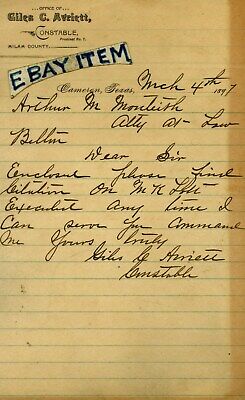 OFFICE OF
Giles C. Avriett,
CONSTABLE,
Precinct No. 7.
MILAM COUNTY.
EBAY ITEM
Cameron, Texas, Mch 4th 1897
Arthur M Monteith
Atty at Law
Belton
Dear Sir
Enclosed please find
Citation on M K & T
Executed any time I
Can serve you Command
me Yours truly
Giles C Avriett
Constable